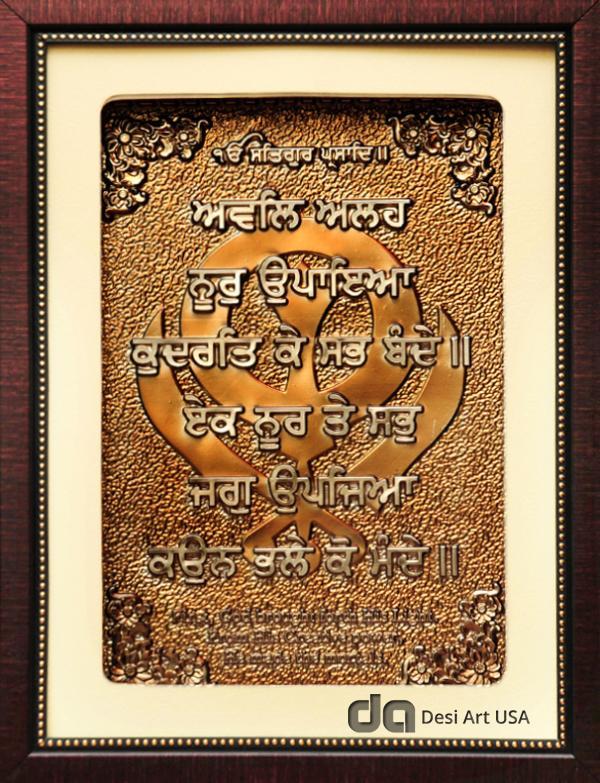 ੴ ਸਤਿਗੁਰ ਪ੍ਰਸਾਦਿ॥
ਅਵਲਿ ਅਲਹ
ਨੂਰੁ ਉਪਾਇਆ
ਕੁਦਰਤਿ ਕੇ ਸਭ ਬੰਦੇ॥
ਏਕ ਨੂਰ ਤੇ ਸਭੁ
ਜਗੁ ਉਪਜਿਆ
ਕਉਨ ਭਲੇ ਕੋ ਮੰਦੇ॥
da Desi Art USA